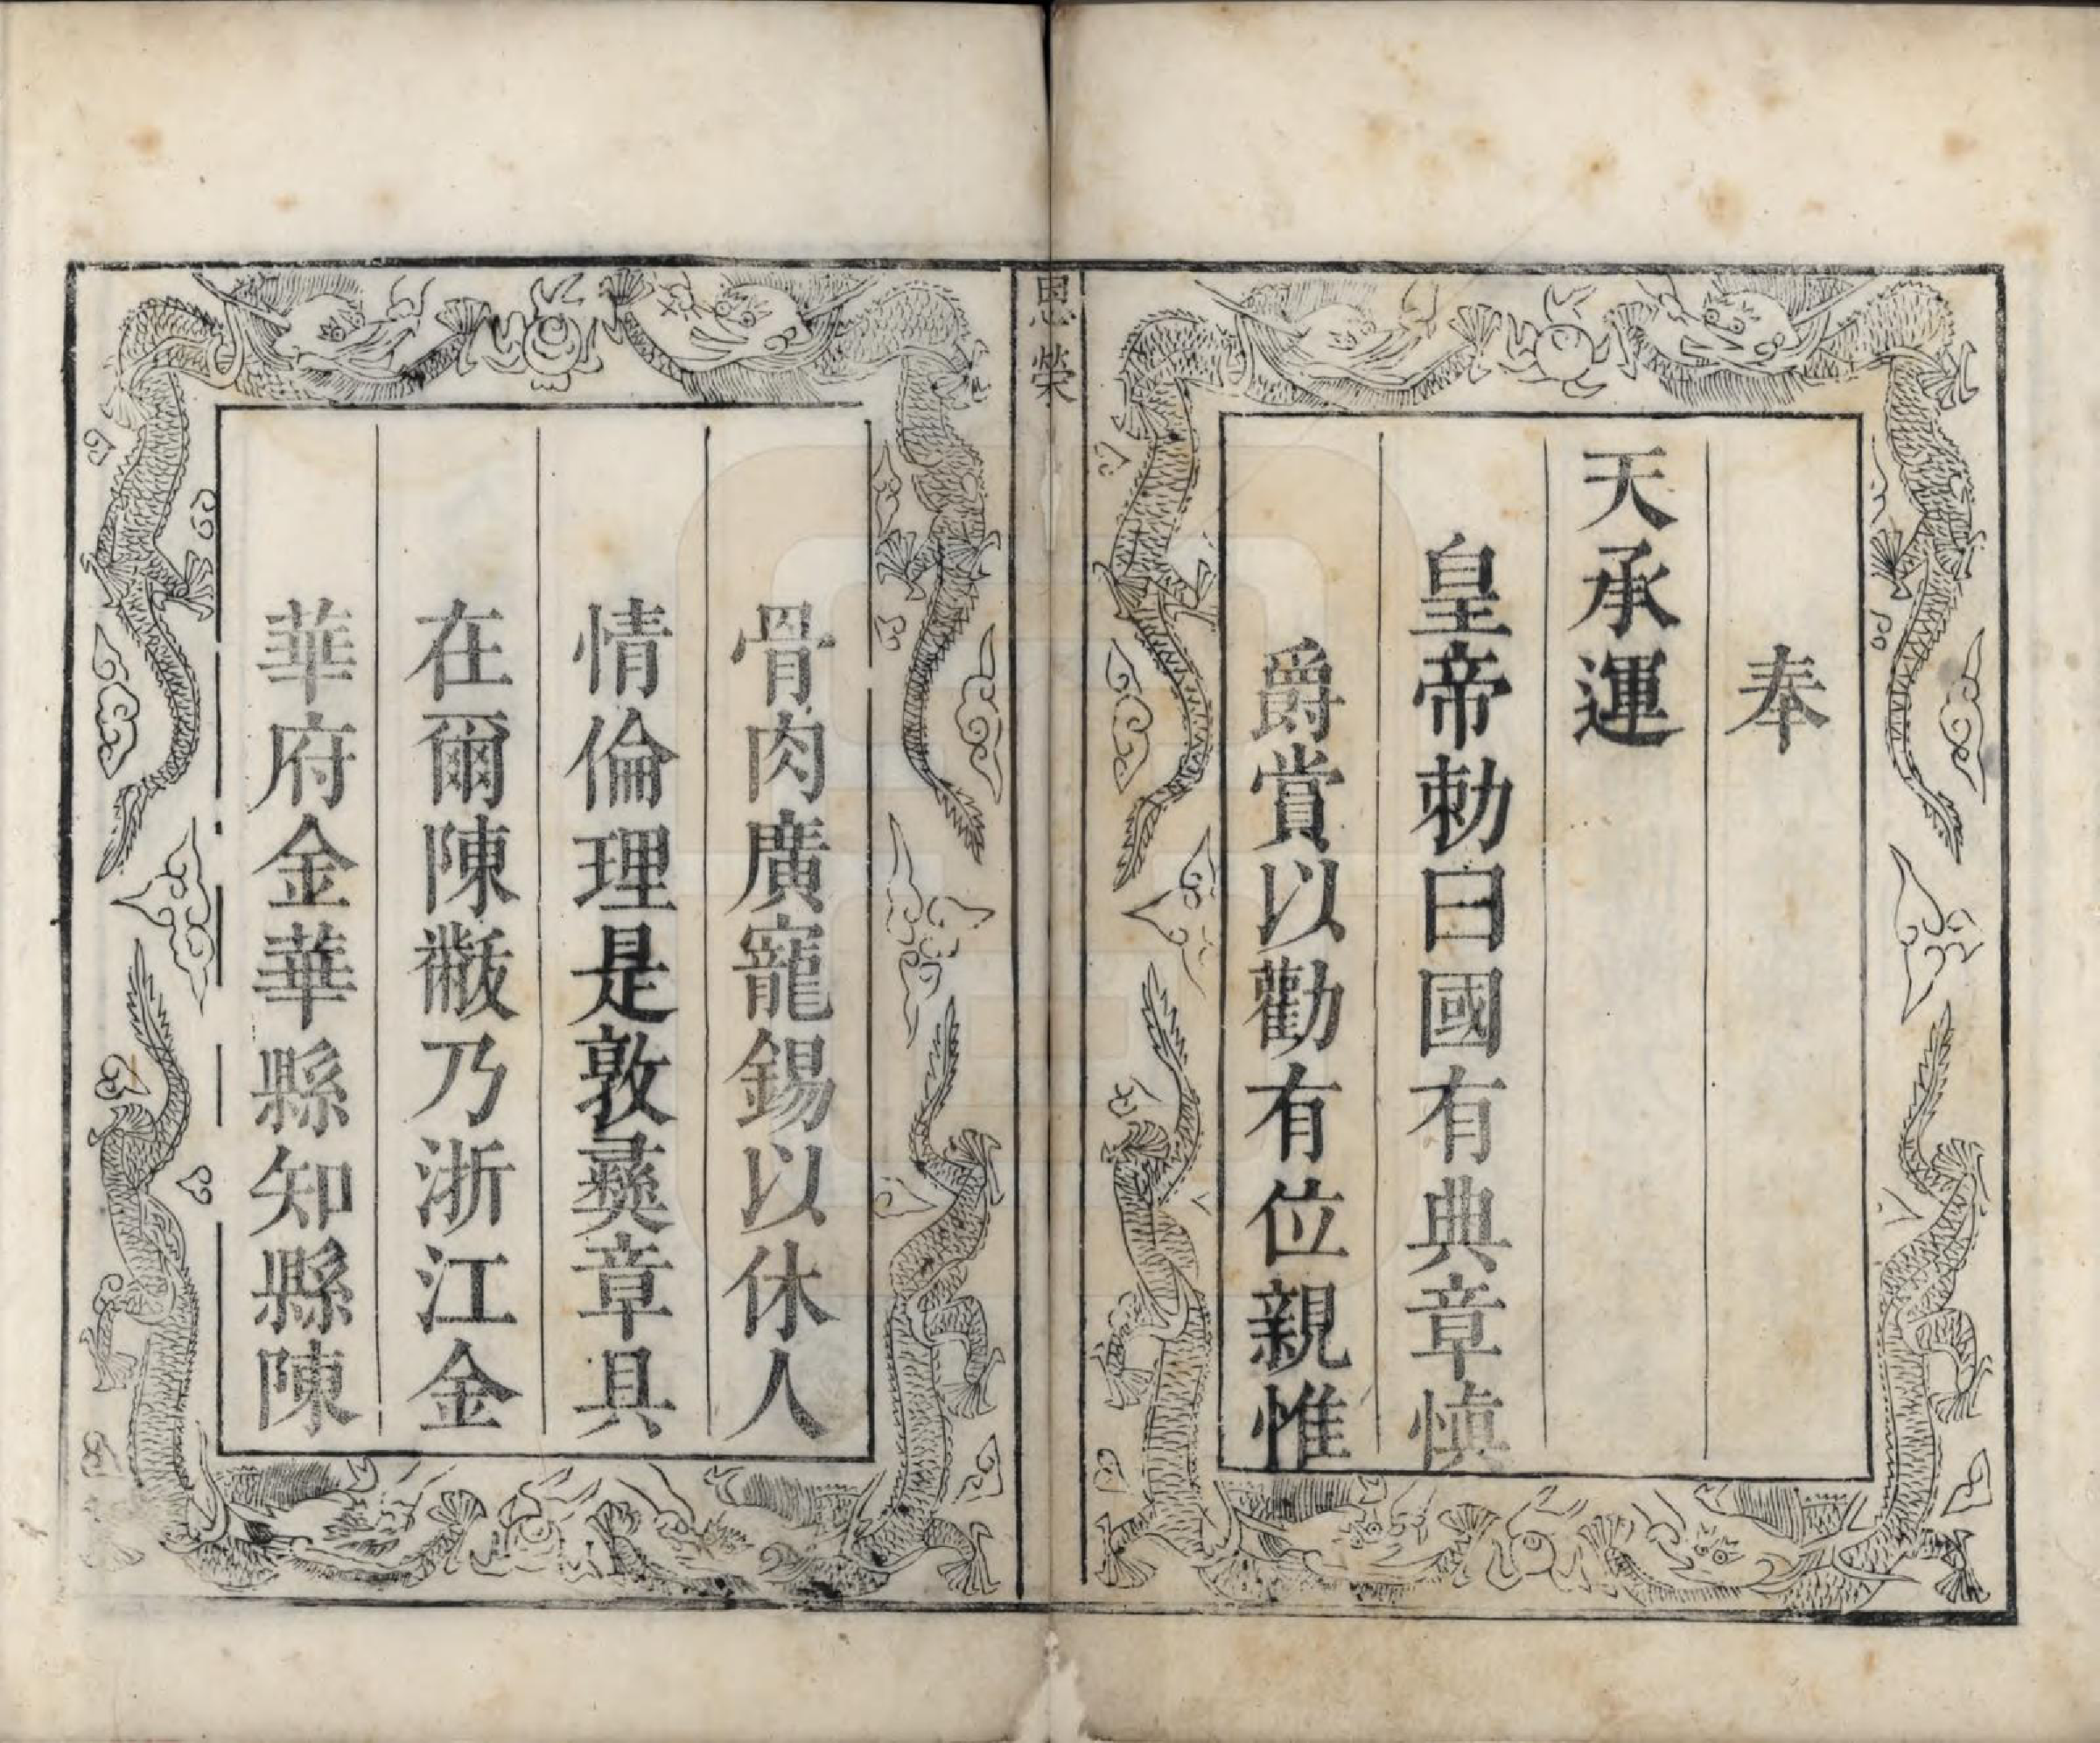 奉
天承運
皇帝勅曰國有典章愼
爵賞以勸有位親惟
恩榮
骨肉廣寵錫以休人
情倫理是敦彝章具
在爾陳黻乃浙江金
華府金華縣知縣陳